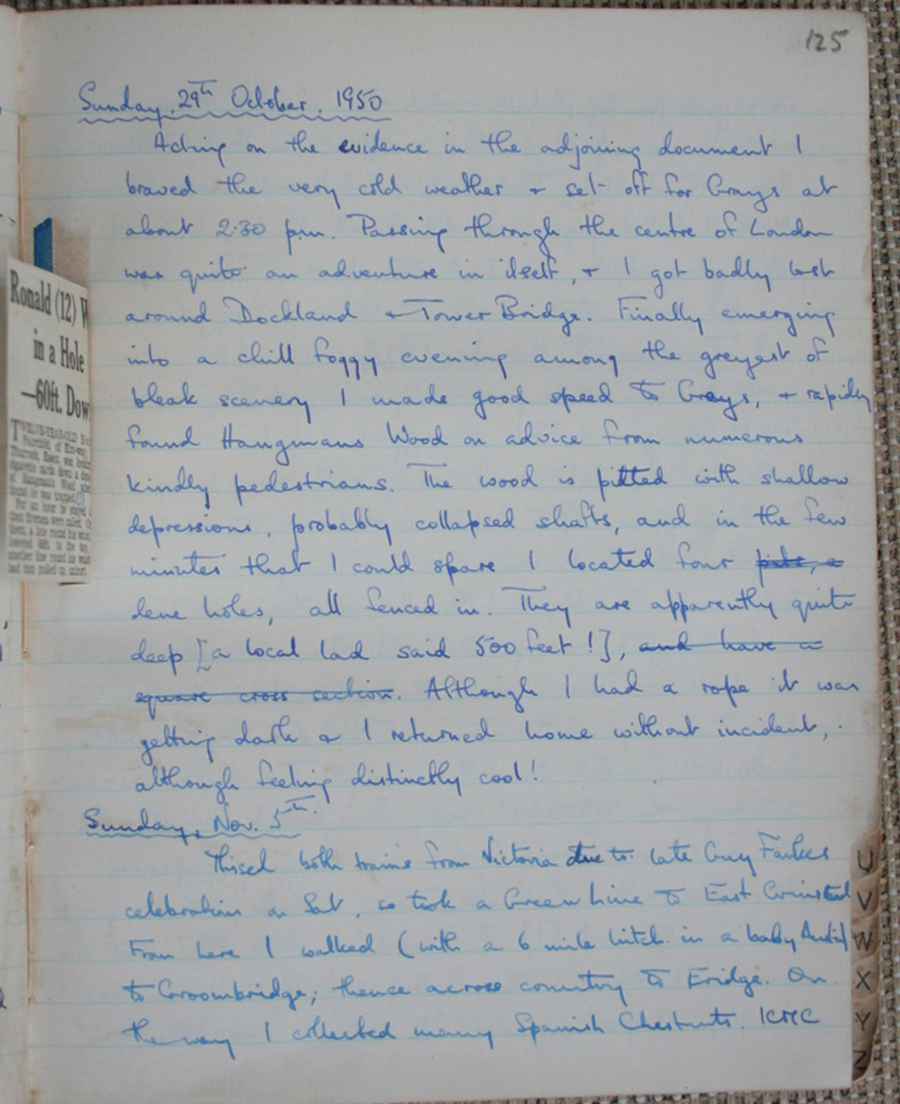 125
Sunday, 29th October, 1950
Acting on the evidence in the adjoining document I
braved the very cold weather + set off for Grays at
about 2.30 p.m. Passing through the centre of London
was quite an adventure in itself, + I got badly lost
around Dockland + Tower Bridge. Finally emerging
into a chill foggy evening among the greyest of
bleak scenery I made good speed to Grays, + rapidly
found Hangmans Wood on advice from numerous
kindly pedestrians. The wood is pitted with shallow
depressions, probably collapsed shafts, and in the few
minutes that I could spare I located four pits, a
dene holes, all fenced in. They are apparently quite
deep [a local lad said 500 feet!], and have a
square cross section. Although I had a rope it was
getting dark & I returned home without incident,
although feeling distinctly cool!
Sunday, Nov. 5th.
Missed both trains from Victoria due to late Guy Fawkes
celebrations on Sat, so took a Green Line to East Grinstead
From here I walked (with a 6 mile hitch in a baby Austin)
to Groombridge; thence across country to Eridge. On
the way I collected many Spanish Chestnuts.
Ronald (12) W
in a Hole
—60ft. Dow
U
V
W
X
Y
Z